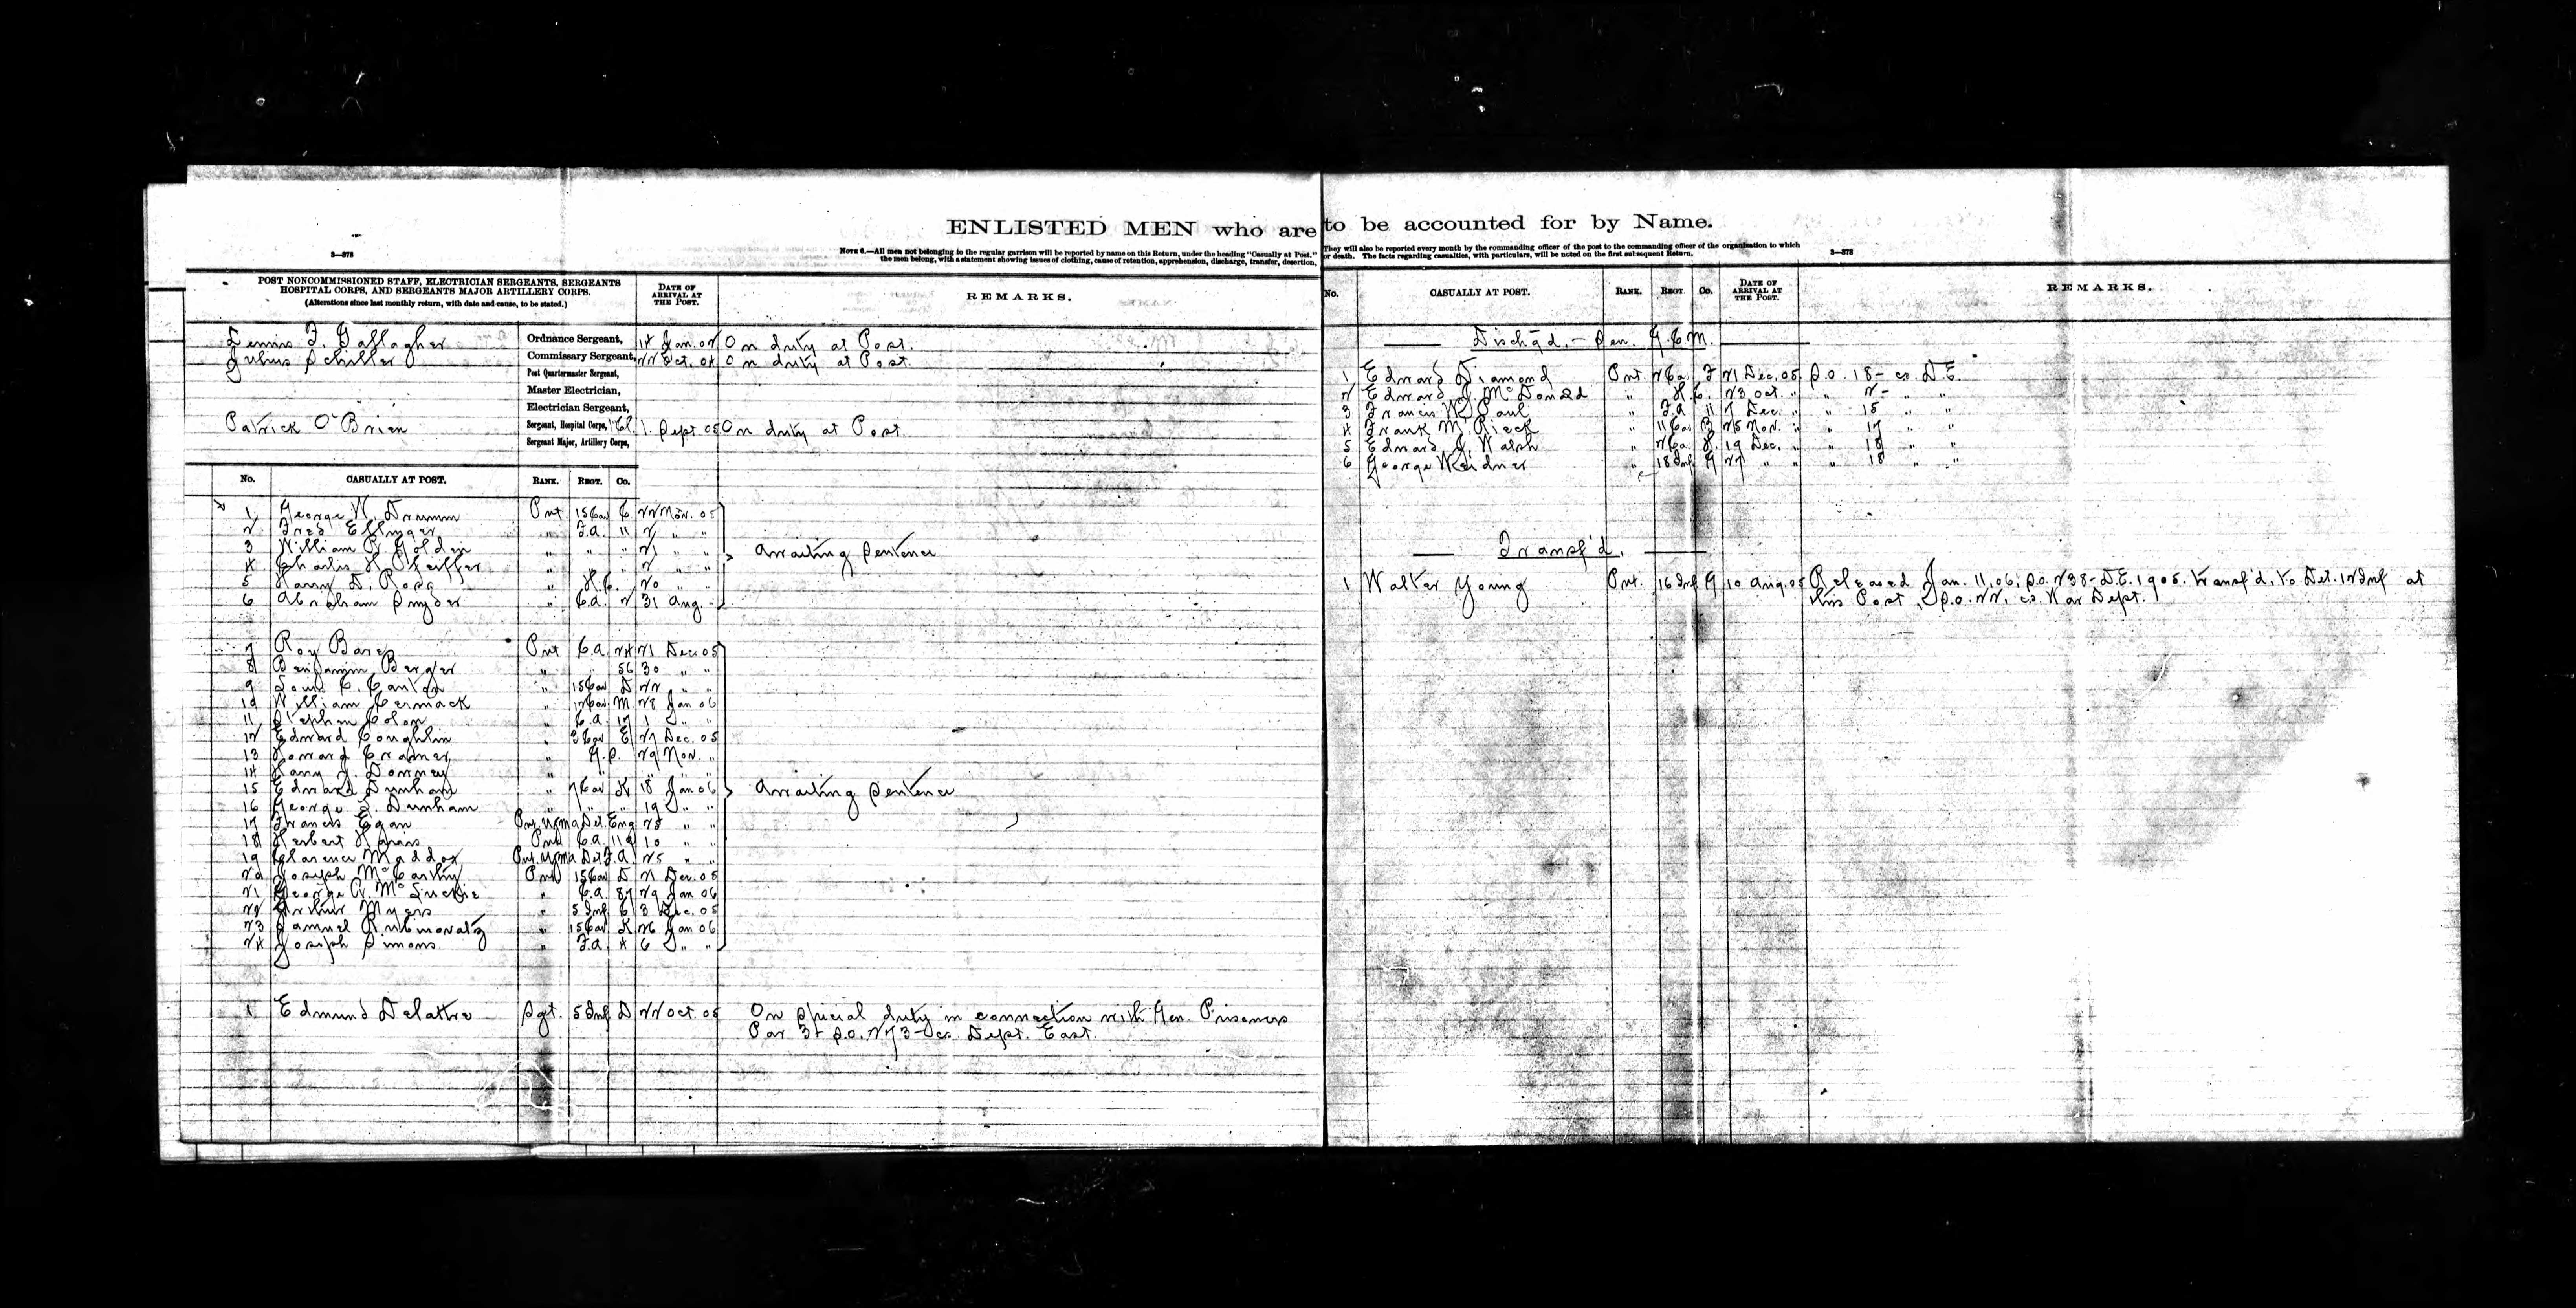 ENLISTED MEN who are to be accounted for by Name.
3—378
NOTE 6.—All men not belonging to the regular garrison will be reported by name on this Return, under the heading "Casually at Post." They will also be reported every month by the commanding officer of the post to the commanding officer of the organization to which
the men belong, with a statement showing issues of clothing, cause of retention, apprehension, discharge, transfer, desertion, or death. The facts regarding casualties, with particulars, will be noted on the first subsequent Return.
3—378
POST NONCOMMISSIONED STAFF, ELECTRICIAN SERGEANTS, SERGEANTS
HOSPITAL CORPS, AND SERGEANTS MAJOR ARTILLERY CORPS.
(Alterations since last monthly return, with date and cause, to be stated.)
DATE OF ARRIVAL AT THE POST.
REMARKS.
Dennis F. Gallagher Ordnance Sergeant, 14 Jan. 02 On duty at Post.
Julius Schiller Commissary Sergeant, 22 Oct. 04 On duty at Post.
Post Quartermaster Sergeant,
Master Electrician,
Electrician Sergeant,
Patrick O'Brien Sergeant, Hospital Corps, 1 Cl. 1 Sept 05 On duty at Post.
Sergeant Major, Artillery Corps,
No. CASUALLY AT POST. RANK. REGT. CO.
1 George W. Drumm Pvt. 15 Cav C 22 Nov. 05
2 Fred Ellinger " F.A. 11 2 " "
3 William R Golden " " " 21 " "
4 Charles H Pfeiffer " " " 2 " "
5 Harry D. Rosa " H.C. 20 " "
6 Abraham Snyder " C.A. 2 31 Aug. "
Awaiting Sentence
7 Roy Bares Pvt C.A. 24 21 Dec. 05
8 Benjamin Berger " " 56 30 " "
9 Louis C. Canton " 15 Cav D 22 " "
10 William Cermack " 12 Cav. M 28 Jan 06
11 Stephen Colon " C.A. 17 1 " "
12 Edward Coughlin " 3 Cav E 27 Dec. 05
13 Howard Cramer " G.P. 29 Nov. "
14 Harry J. Dorney " " " " "
15 Edward Dunham " 7 Cav K 18 Jan 06
16 George L. Dunham " " " 19 " "
17 Francis Egan Pvt. U.S.M.A. Det. Eng 28 " "
18 Herbert Harris Pvt C.A. 119 10 " "
19 Clarence Maddox Pvt. U.S.M.A Det F.A. 25 " "
20 Joseph McCarthy Pvt 15 Cav D 21 Dec. 05
21 George R. McLuckie " C.A. 87 29 Jan 06
22 Arthur Myers " 5 Inf C 3 Dec. 05
23 Samuel Rubinovatz " 15 Cav K 26 Jan 06
24 Joseph Simons " F.A. 4 6 " "
Awaiting Sentence
1 Edmund Delattre Sgt. 5 Inf D 22 Oct. 05 On special duty in connection with Gen. Prisoners
Par 34 S.O. 273- cs. Dept. East.
No. CASUALLY AT POST. RANK. REGT. CO. DATE OF ARRIVAL AT THE POST. REMARKS.
Disch'gd. - Sen. G.C.M.
1 Edward Diamond Pvt. 2 Ca. F 21 Dec. 05 S.O. 18- cs. D.E.
2 Edward J. McDonald " H.C. 23 Oct. " " 2- " "
3 Francis W. Paul " F.A. 11 7 Dec. " " 15 " "
4 Frank M Rieck " 11 Cav B 25 Nov. " " 17 " "
5 Edward J. Walsh " 7 Ca. H. 19 Dec. " " 18 " "
6 George Weidner " 18 Inf G 27 " " " 18 " "
Transf'd.
1 Walter Young Pvt. 16 Inf G 10 Aug. 05 Released Jan. 11, 06; S.O. 238- D.E. 1905. transf'd. to Det. 12 Inf at
this Post, S.O. 22, cs. War Dept.